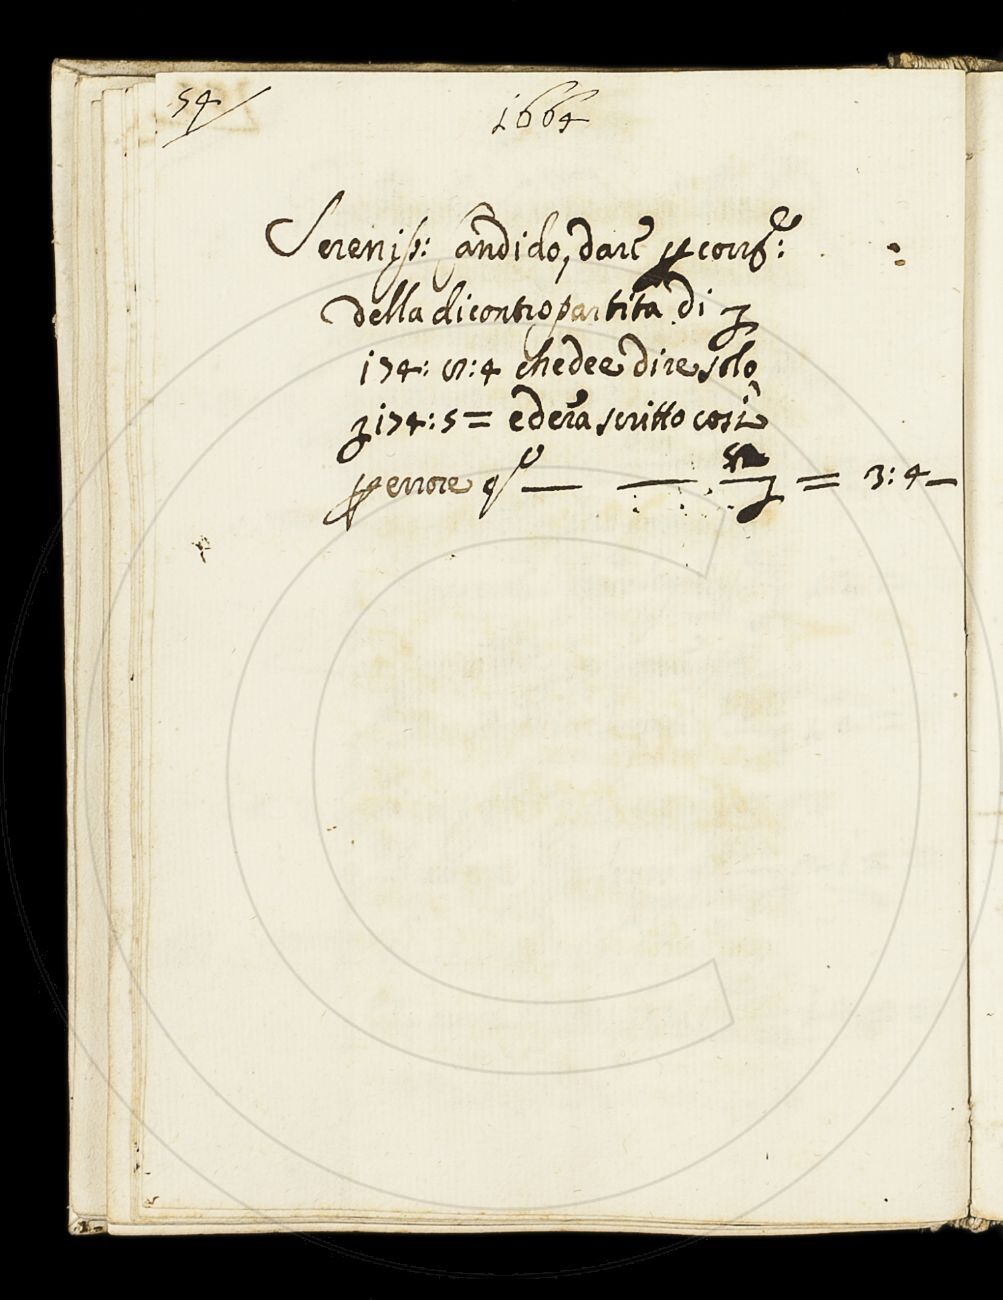 54
1664
Sereniss: Candido, dare p corrz:
della di contro partita di
174: 8: 4 che dee dire solo
174: 5 = ed era scritto così
p errore = 3: 4 –